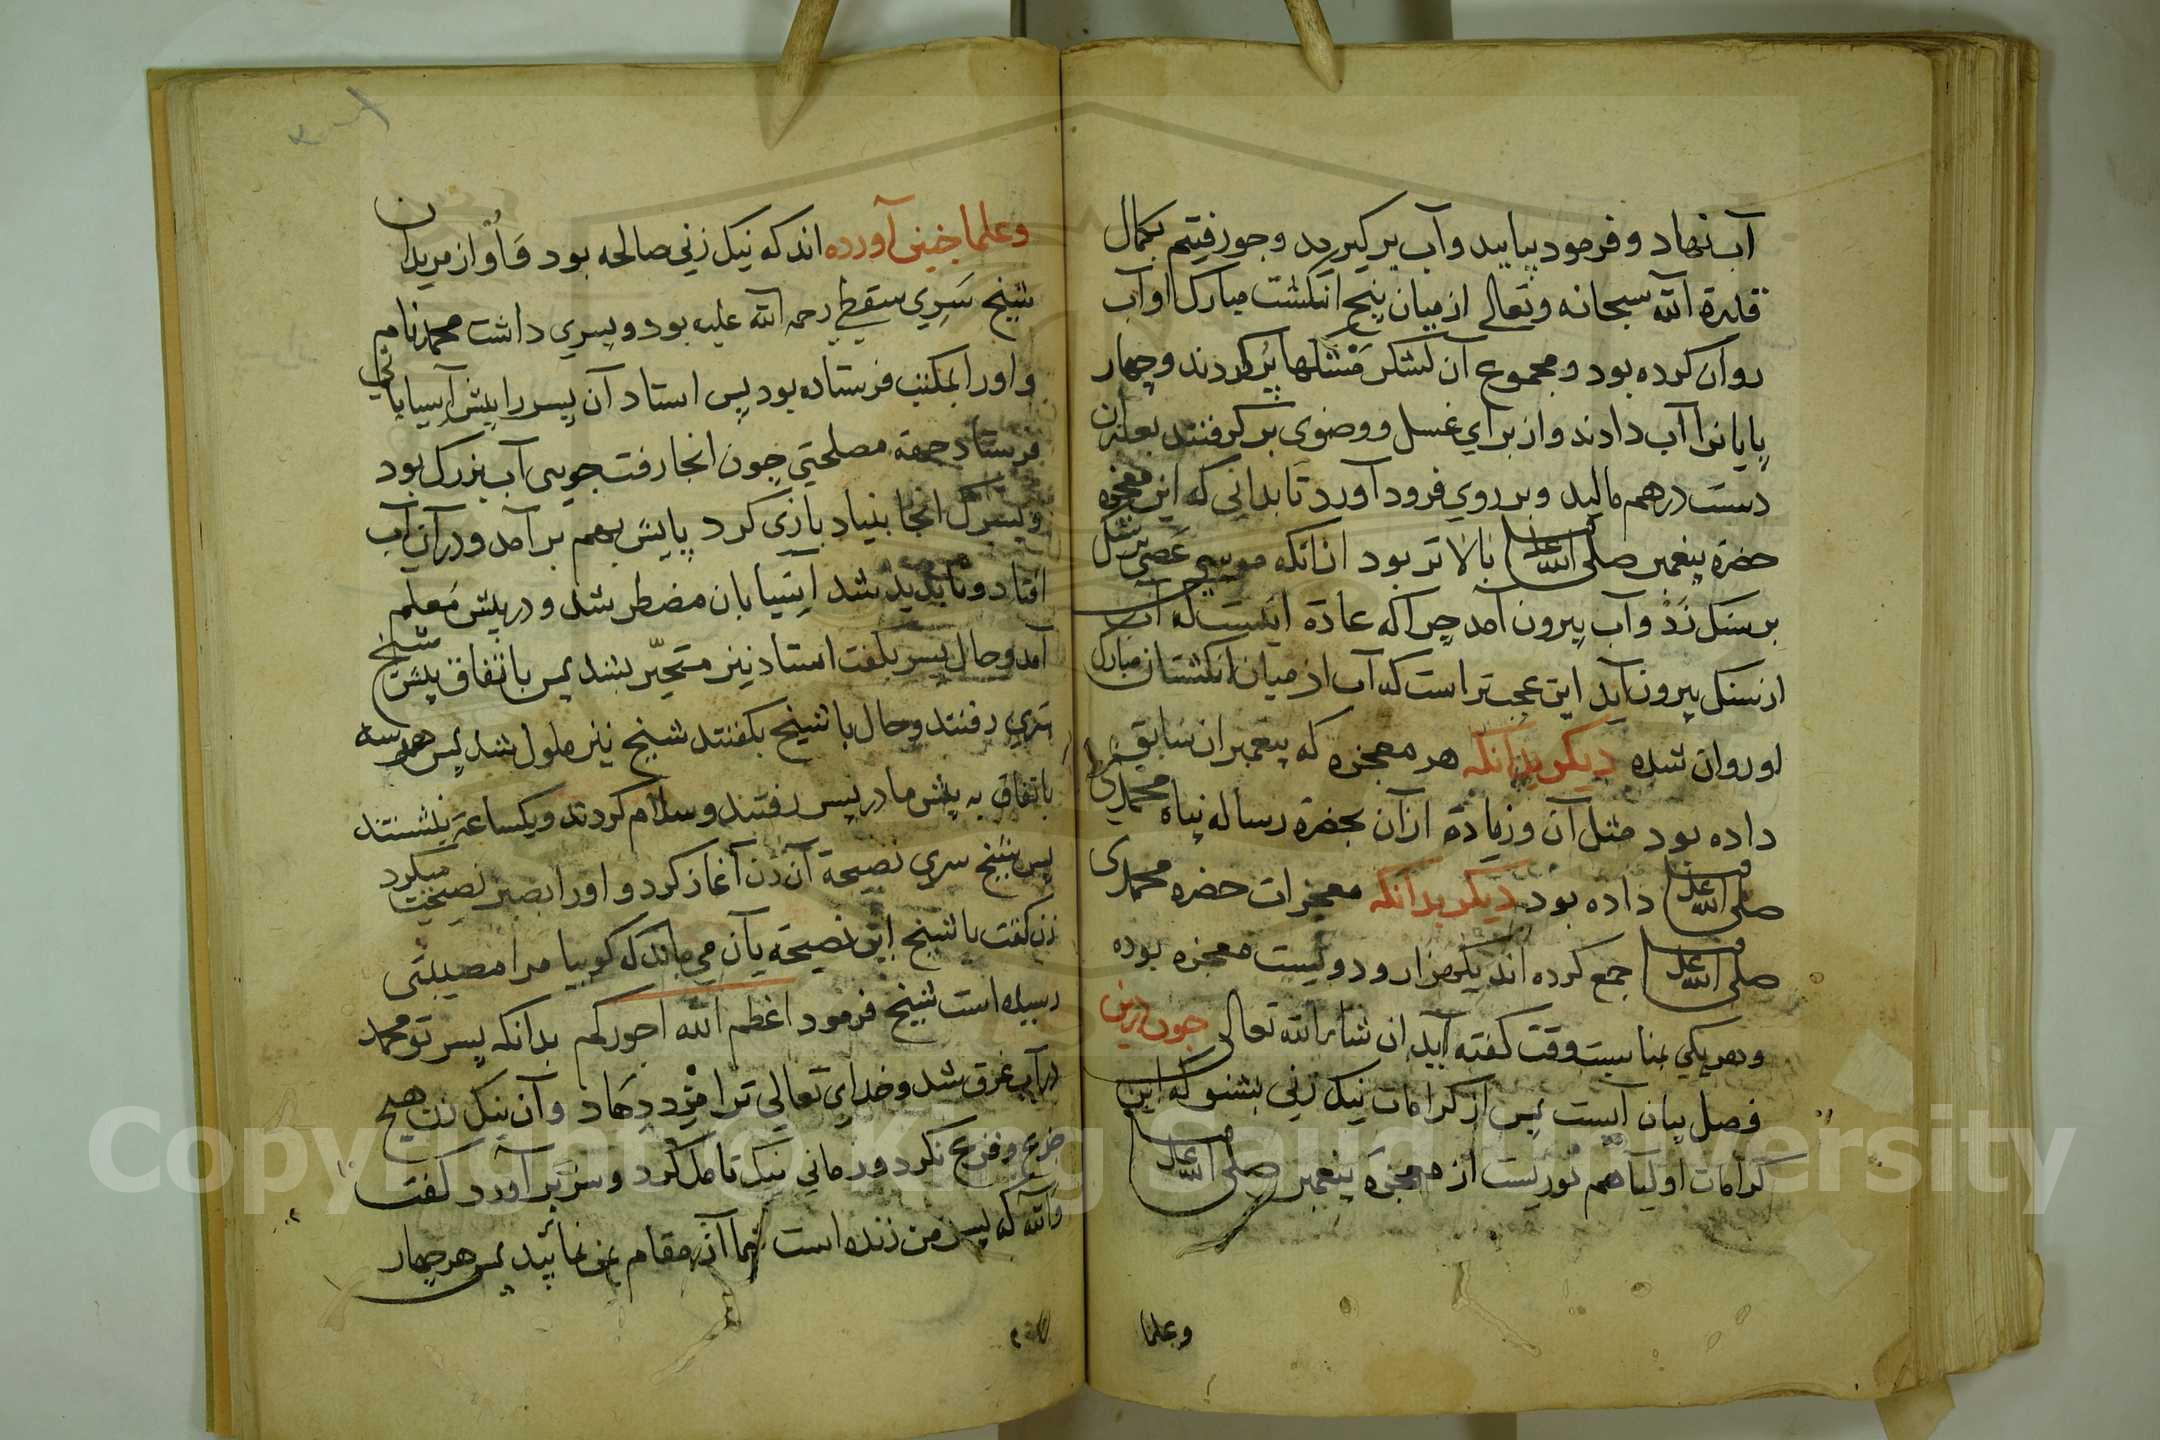 آب نهاد و فرمود بیایید وآب برکیرید وجورفتیم بکمال
قدرة الله سبحانه وتعالی از میان پنج انکشت مبارک او آب
روان کرده بود ومجموع آن لشکر مشکها پر کردند وچهار
پایانرا آب دادند واز برای غسل و وضوی برکرفتند بعد ازان
دست درهم مالید وبر روی فرود آورد تا بدانی که این معجزه
حضرة پیغمبر صلی الله علیه بالاتر بود ازانکه موسی عصی بر سنک
بر سنک زد وآب بیرون آمد چراکه عادة اینست که آب
از سنک بیرون آید این عجب تر است که آب از میان انکشتان مبارک
او روان شده دیکر بدانکه هر معجزه که پیغمبران سابق را
داده بود مثل آن وزیادة ازآن بحضرة رساله پناه محمدی
صلی الله علیه داده بود دیکر بدانکه معجزات حضرة محمدی
صلی الله علیه جمع کرده اند یکهزار و دویست معجزه بوده
وهر یکی بمناسبت وقت کفته آید ان شاء الله تعالی چون درین
فصل بیان آیست پس از کرامات نیک زنی بشنو که این
کرامات اولیا هم نوریست از معجزه پیغمبر صلی الله علیه
وعلما
وعلما چنین آورده اند که نیک زنی صالحه بود واو از مریدان
شیخ سری سقطی رحمه الله علیه بود وپسری داشت محمد نام
واورا بمکتب فرستاده بود پس استاد آن پسر را پیش آسیابانی
فرستاد جهة مصلحتی چون انجا رفت جویی آب بزرک بود
وپسرک انجا بنیاد بازی کرد پایش بهم برآمد ودر آن آب
افتاد وناپدید شد آسیابان مضطر شد ودر پیش معلم
آمد وحال پسر بکفت استاد نیز متحیر شد پس باتفاق پیش شیخ
سری رفتند وحال با شیخ بکفتند شیخ نیز ملول شد پس هر سه
باتفاق به پیش مادر پسر رفتند وسلام کردند ویکساعة بنشستند
پس شیخ سری نصیحة آن زن آغاز کرد و اورا بصبر نصیحت میکرد
زن کفت یا شیخ این نصیحة بآن می ماند که کوییا مرا مصیبتی
رسیده است شیخ فرمود اعظم الله اجورکم بدانکه پسر تو محمد
در آب غرق شد وخدای تعالی ترا مزد دهاد وآن نیک زن هیچ
جزع وفزع نکرد وزمانی نیک تامل کرد وسر برآورد کفت
والله که پسر من زنده است شما آن مقام بمن نمائید پس هر چهار